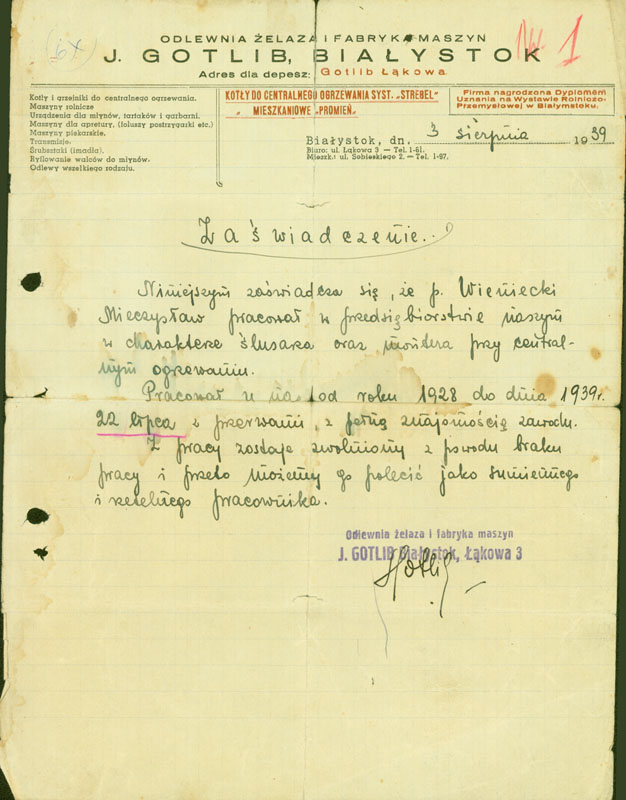 (6x)
Nr 1
ODLEWNIA ŻELAZA I FABRYKA MASZYN
J. GOTLIB, BIAŁYSTOK
Adres dla depesz: Gotlib Łąkowa
Kotły i grzejniki do centralnego ogrzewania.
Maszyny rolnicze
Urządzenia dla młynów, tartaków i garbarni.
Maszyny dla apretury, (foluszy postrzygarki etc.)
Maszyny piekarskie.
Transmisje.
Śrubsztaki (imadła).
Ryflowanie walców do młynów.
Odlewy wszelkiego rodzaju.
KOTŁY DO CENTRALNEGO OGRZEWANIA SYST. „STREBEL"
„ MIESZKANIOWE „PROMIEŃ"
Firma nagrodzona Dyplomem
Uznania na Wystawie Rolniczo-
Przemysłowej w Białymstoku.
Białystok, dn. 3 sierpnia 1939
Biuro: ul. Łąkowa 3 — Tel. 1-61.
Mieszk.: ul. Sobieskiego 2. — Tel. 1-97.
Zaświadczenie.
Niniejszym zaświadcza się, że p. Wieniecki
Mieczysław pracował w przedsiębiorstwie naszym
w charakterze ślusarza oraz montera przy central-
nym ogrzewaniu.
Pracował u nas od roku 1928 do dnia 1939 r.
22 lipca z przerwami, z pełną znajomością zawodu.
Z pracy zostaje zwolniony z powodu braku
pracy i przeto możemy go polecić jako sumiennego
i rzetelnego pracownika.
Odlewnia żelaza i fabryka maszyn
J. GOTLIB Białystok, Łąkowa 3
Gotlib